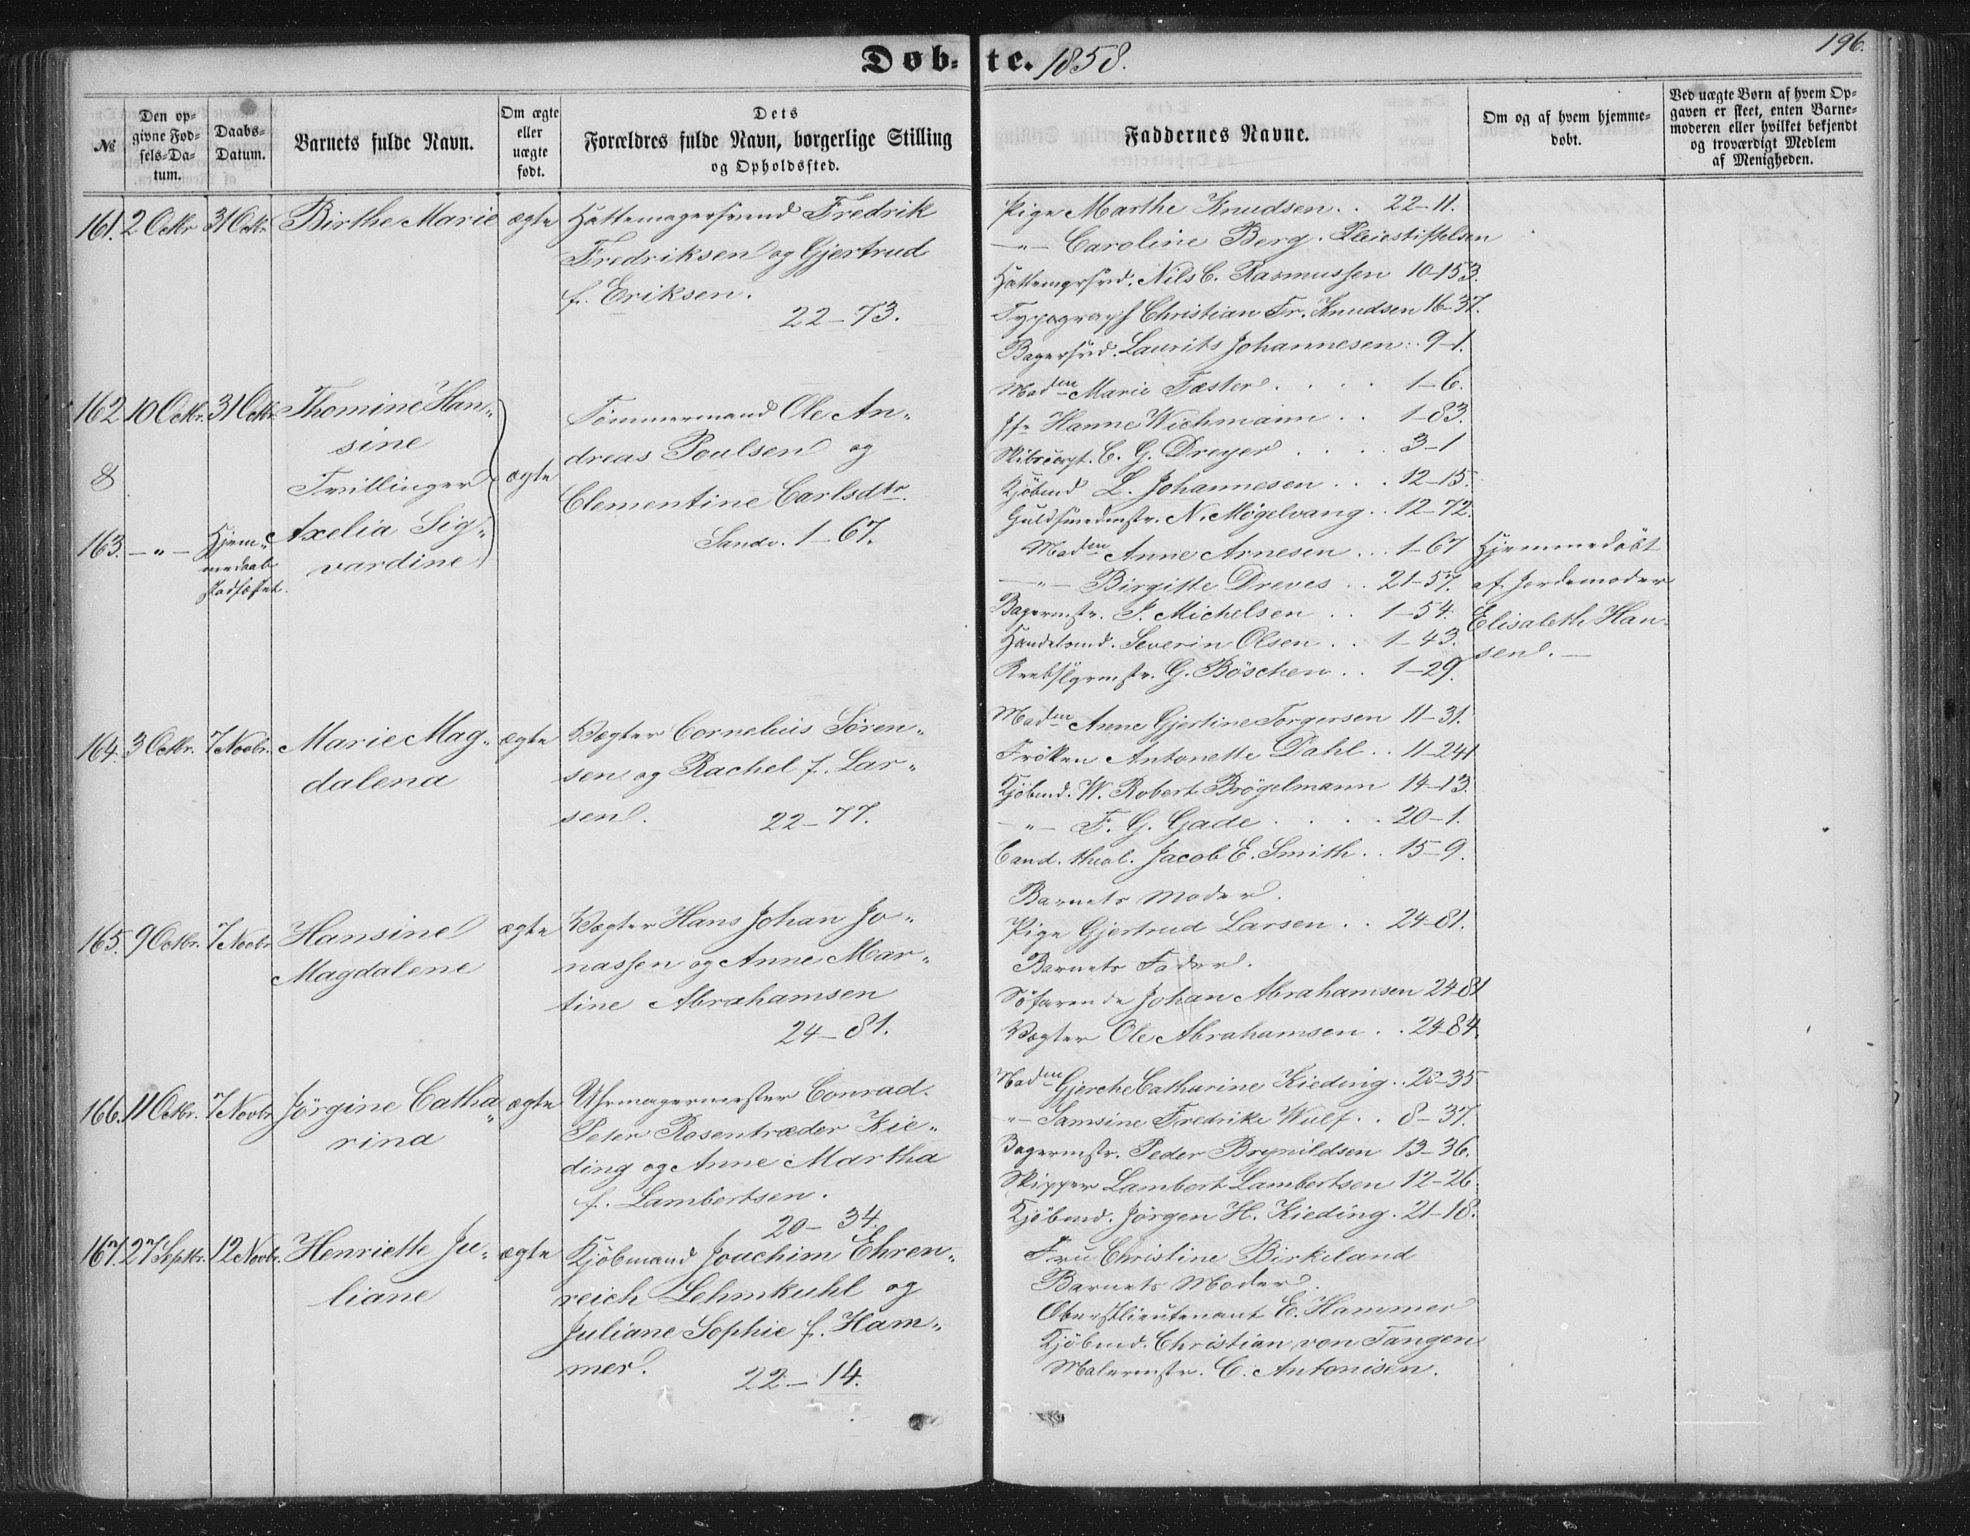 Døb- te. 1858.
196.
№
Den op-
givne Fød-
sels-Da-
tum.
Daabs-
Datum.
Barnets fulde Navn.
Om ægte
eller
uægte
født.
Dets
Forældres fulde Navn, borgerlige Stilling
og Opholdssted.
Faddernes Navne.
Om og af hvem hjemme-
døbt.
Ved uægte Børn af hvem Op-
gaven er skeet, enten Barne-
moderen eller hvilket bekjendt
og troværdigt Medlem
af Menigheden.
161. 2 Octbr 31 Octbr. Birthe Marie ægte Hattemagersvend Fredrik
Fredriksen og Gjertrud
f. Eriksen.
22-73.
Pige Marthe Knudsen . . 22-11.
-"- Caroline Berg. Pleiestiftelsen
Hattemgrsvd. Nils C. Rasmussen 10-153.
Typograph Christian Fr. Knudsen 16-37.
Bagersvd. Laurits Johannesen . . 9-1.
162. 10 Octbr. 31 Octbr. Thomine Han-
sine
Tvillinger
&
ægte
Tømmermand Ole An-
dreas Poulsen og
Clementine Carlsdtr.
Sandv. 1-67.
163. -"- Hjem-
medaab
stadfæstet.
Axelia Sig-
vardine
Maden Marie Fæster . . . . 1-6.
Jfr Hanne Wichmann . . 1-83.
Skibscapt. C. G. Dreyer . . . . 3-1
Kjøbmd L. Johannesen . . . 12-15.
Guldsmedmstr. N. Møgelvang . . 12-72.
Maden Anne Arnesen . . . 1-67
-"- Birgitte Dreves . . 21-57.
Bagermstr. J. Michelsen . . 1-54.
Handelsmd. Severin Olsen . . 1-43.
Rebslgrmstr. G. Bøschen . . 1-29.
Hjemmedøbt
af Jordemoder
Elisabeth Han-
sen. -
164. 3 Octbr. 7 Novbr. Marie Mag-
dalena
ægte
Vægter Cornelius Søren-
sen og Rachel f. Lar-
sen.
22-77.
Maden Anne Gjertine Torgersen 11-31.
Frøken Antonette Dahl . . 11-241
Kjøbmd. W. Robert Brøgelmann 14-13.
-"- F. G. Gade . . . . 20-1.
Cand. theol. Jacob E. Smith . . 15-9.
165. 9 Octbr. 7 Novbr Hansine
Magdalene
ægte
Vægter Hans Johan Jo-
nassen og Anne Mar-
tine Abrahamsen
24-81.
Barnets Moder.
Pige Gjertrud Larsen . . 24-81.
Barnets Fader.
Søfarende Johan Abrahamsen 24-81
Vægter Ole Abrahamsen . . 24-84.
166. 11 Octbr. 7 Novbr Jørgine Catha-
rina
ægte
Uhrmagermester Conrad
Peter Rosentræder Kie-
ding og Anne Martha
f. Lambertsen.
20-34.
Maden Gjerche Catharine Kieding. 20-35
-"- Samsine Fredrike Wulf . . 8-37.
Bagermstr. Peder Brynildsen 13-36.
Skipper Lambert Lambertsen 12-26.
Kjøbmd. Jørgen H. Kieding. 21-18.
167. 27 Septbr. 12 Novbr. Henriette Ju-
liane
ægte
Kjøbmand Joachim Ehren-
reich Lehmkuhl og
Juliane Sophie f. Ham-
mer.
22-14.
Fru Christine Birkeland
Barnets Moder.
Oberstlieutenant E. Hammer
Kjøbmd. Christian von Tangen
Malermstr. C. Antonisen.